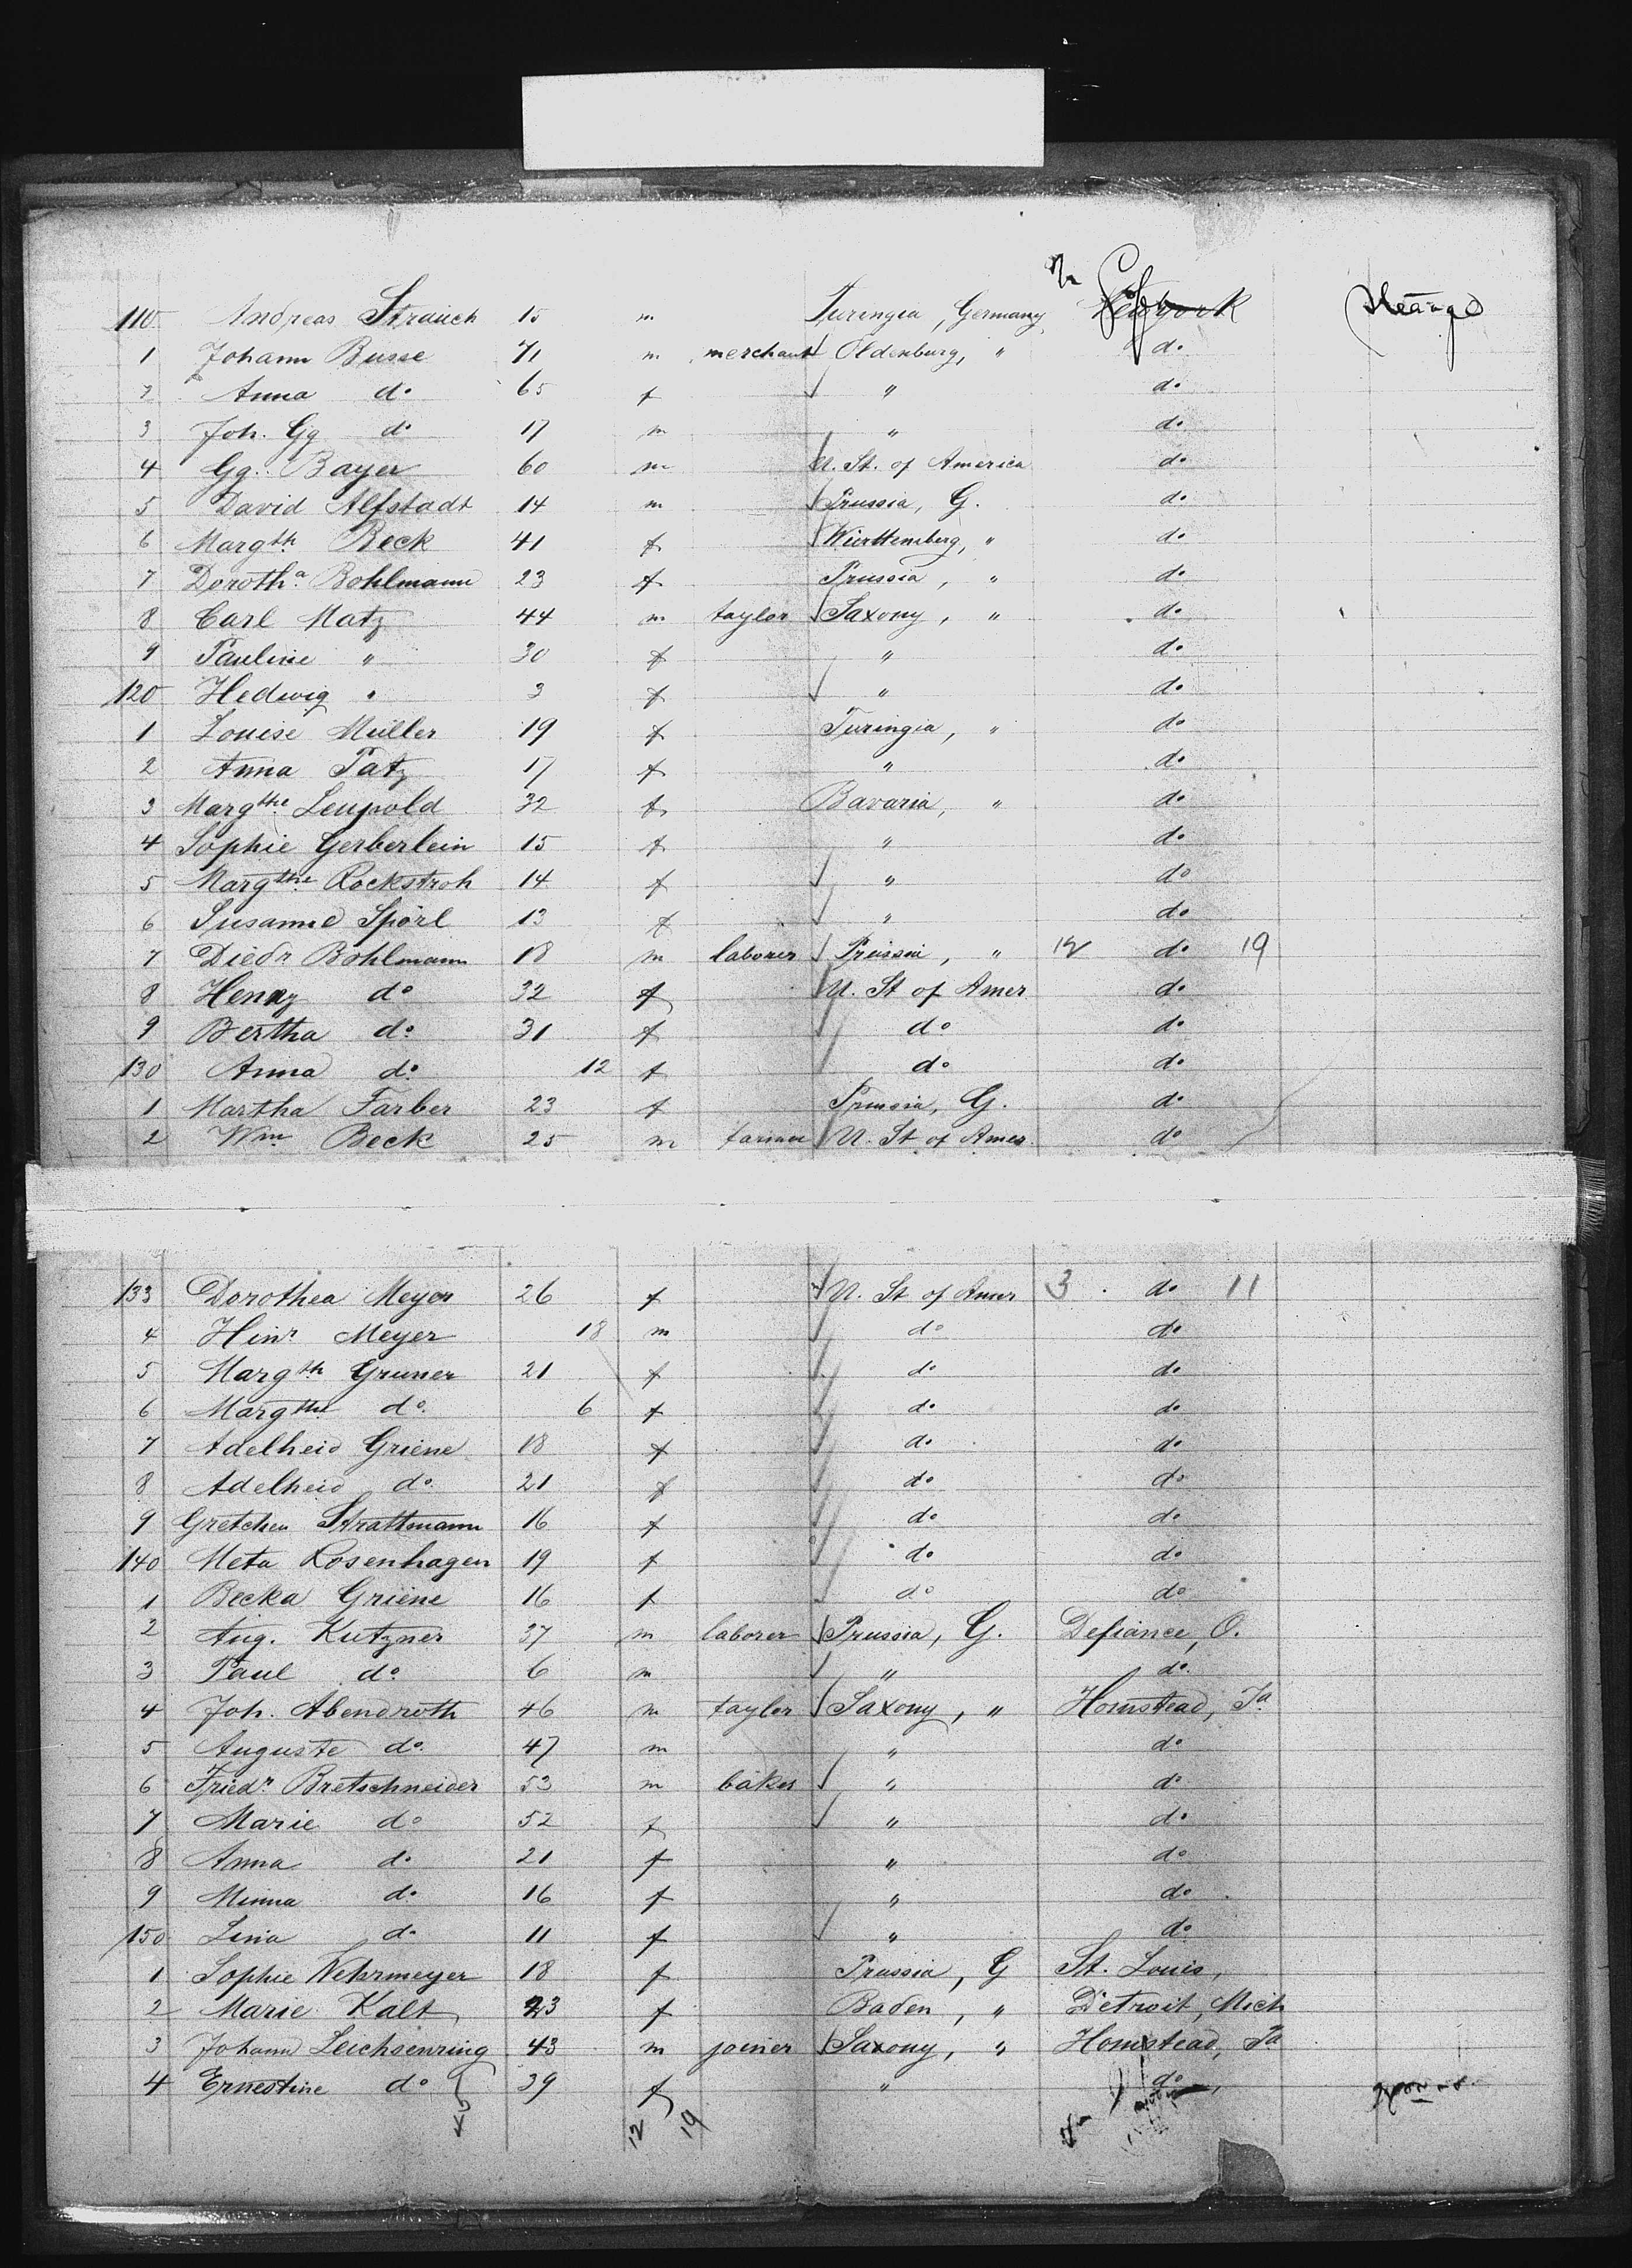 110 Andreas Strauch 15 m Turingia, Germany New York Steerage
1 Johann Busse 71 m merchant Oldenburg, " do
2 Anna do 65 f " do
3 Joh. Gg do 17 m " do
4 Gg. Bayer 60 m U. St. of America do
5 David Alfstadt 14 m Prussia, G. do
6 Margth Beck 41 f Württemberg, " do
7 Dorotha Bohlmann 23 f Prussia, " do
8 Carl Matz 44 m taylor Saxony, " do
9 Pauline " 30 f " do
120 Hedwig " 3 f " do
1 Louise Müller 19 f Turingia, " do
2 Anna Patz 17 f " do
3 Margthe Leupold 32 f Bavaria, " do
4 Sophie Gerberlein 15 f " do
5 Margthe Rockstroh 14 f " do
6 Susanne Spörl 13 f " do
7 Diedr Bohlmann 18 m laborer Prussia, " 12 do 19
8 Henry do 32 f U. St of Amer do
9 Bertha do 31 f do do
130 Anna do 12 f do do
1 Martha Farber 23 f Prussia, G. do
2 Wm Beck 25 m farmer U. St of Amer do
133 Dorothea Meyer 26 f U. St of Amer 3 do 11
4 Hinr Meyer 18 m do do
5 Margth Gruner 21 f do do
6 Margthe do 6 f do do
7 Adelheid Griene 18 f do do
8 Adelheid do 21 f do do
9 Gretchen Strattmann 16 f do do
140 Meta Rosenhagen 19 f do do
1 Becka Griene 16 f do do
2 Aug. Kutzner 37 m laborer Prussia, G. Defiance, O.
3 Paul do 6 m " do
4 Joh. Abendroth 46 m taylor Saxony, " Homstead, Ja
5 Auguste do 47 m " do
6 Friedr Bretschneider 53 m baker " do
7 Marie do 52 f " do
8 Anna do 21 f " do
9 Minna do 16 f " do
150 Lina do 11 f " do
1 Sophie Wehrmeyer 18 f Prussia, G St. Louis,
2 Marie Kalt 23 f Baden, " Detroit, Mich
3 Johann Leichsenring 43 m joiner Saxony, " Homstead, Ja
4 Ernestine do 39 f " do
12 19